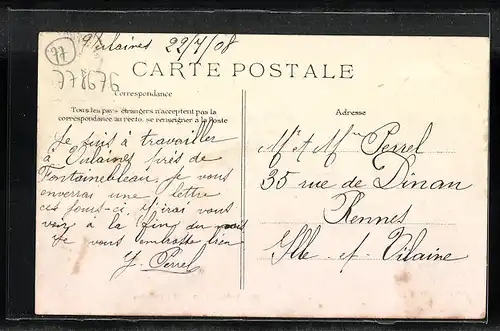 Vulaines 22/7/08
77
778676
CARTE POSTALE
Correspondance
Tous les pays étrangers n'acceptent pas la
correspondance au recto. se renseigner à la Poste
Adresse
Je suis à travailler
à Vulaines près de
Fontainebleau, je vous
enverrai une lettre
ces jours-ci. J'irai vous
voir à la fin du mois
Je vous embrasse bien
J. Perrel
Mr et Mme Perrel
35 rue de Dinan
Rennes
Ille-et-Vilaine